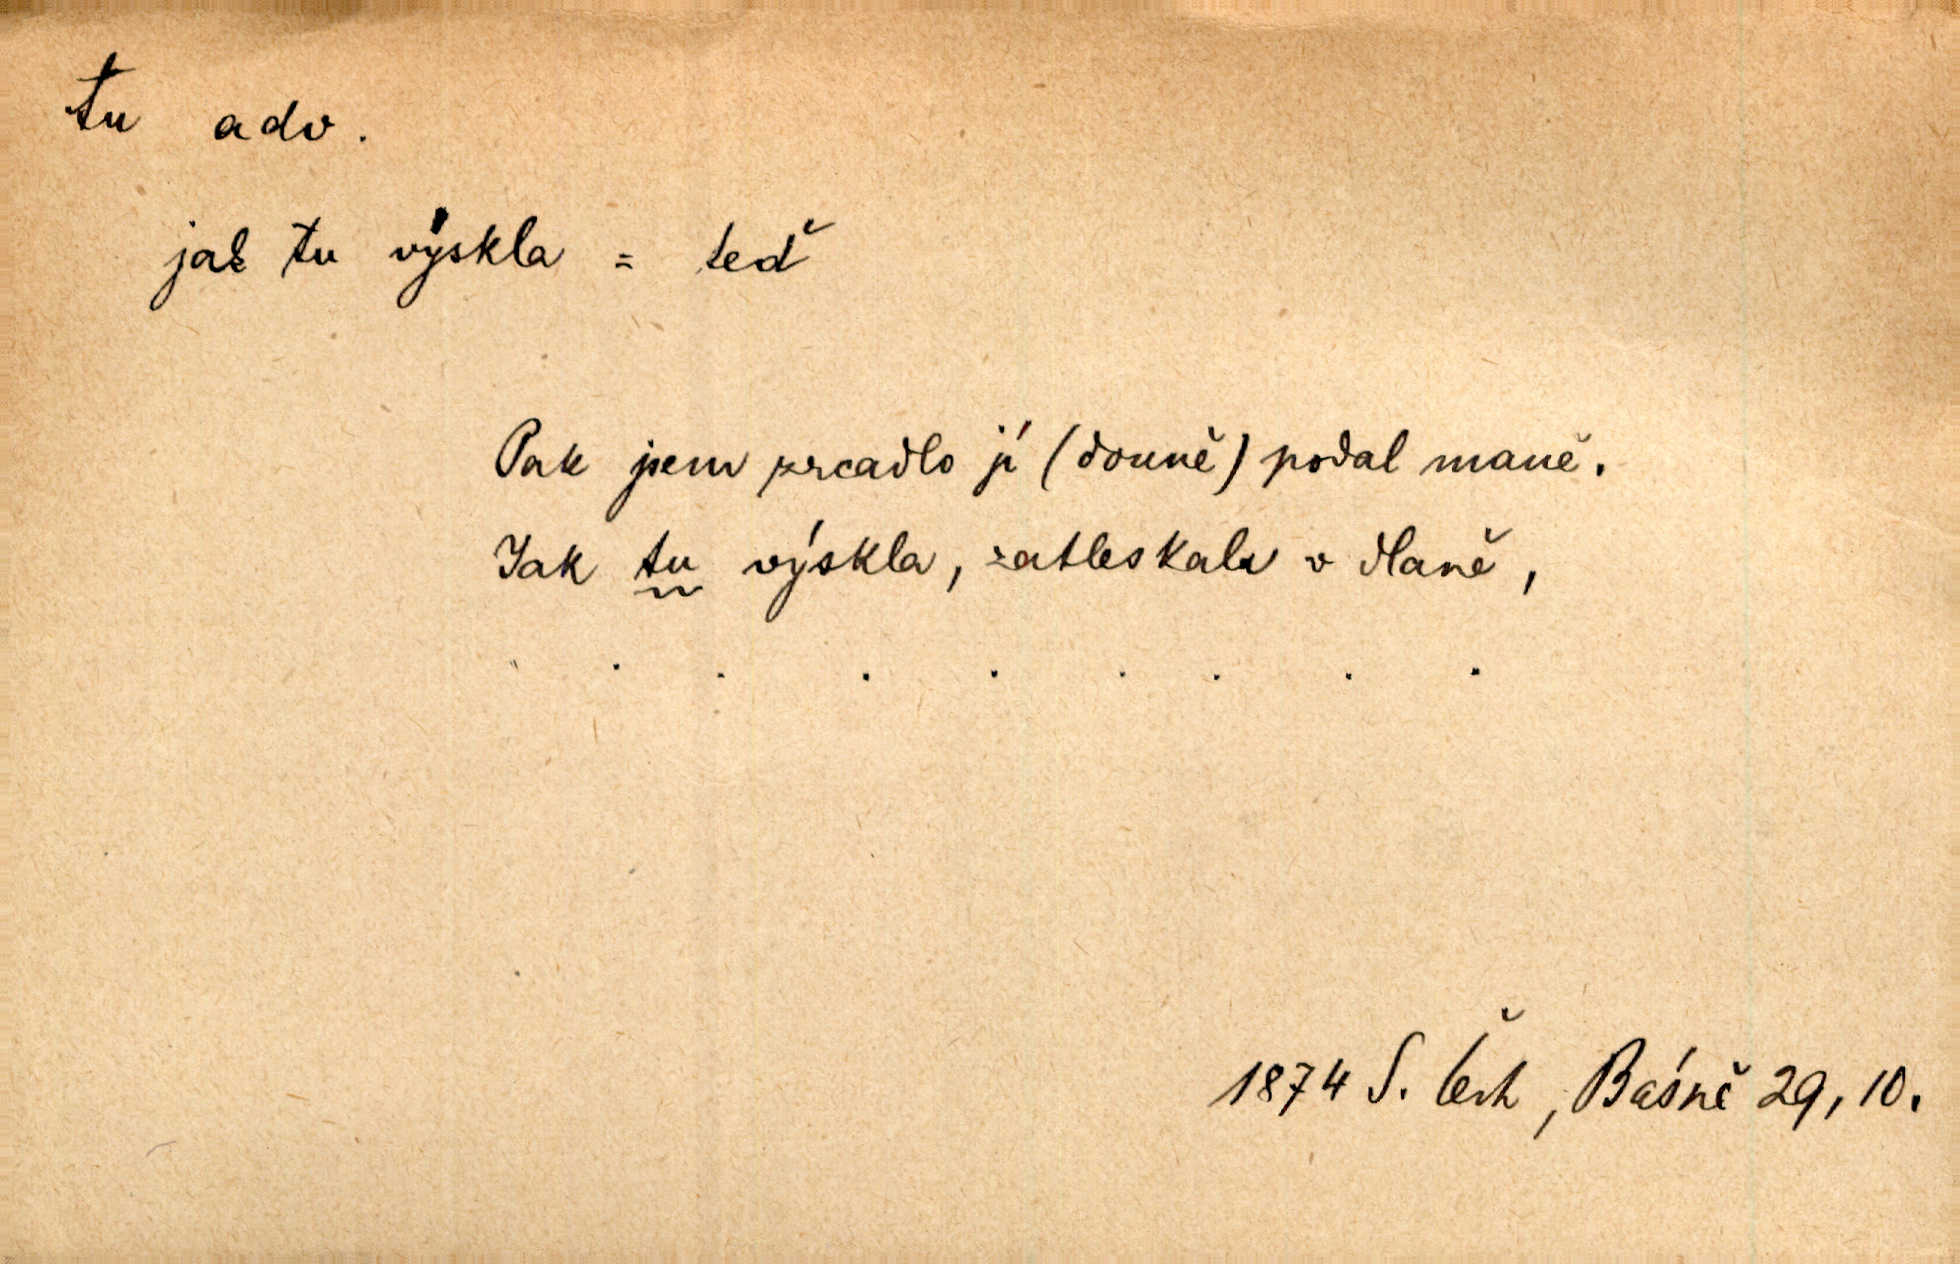 tu adv.
jak tu výskla = teď
Pak jsem zrcadlo jí (donně) podal maně.
Jak tu výskla, zatleskala v dlaně,
. . . . . . . . .
1874 S. Čech, Básně 29, 10.